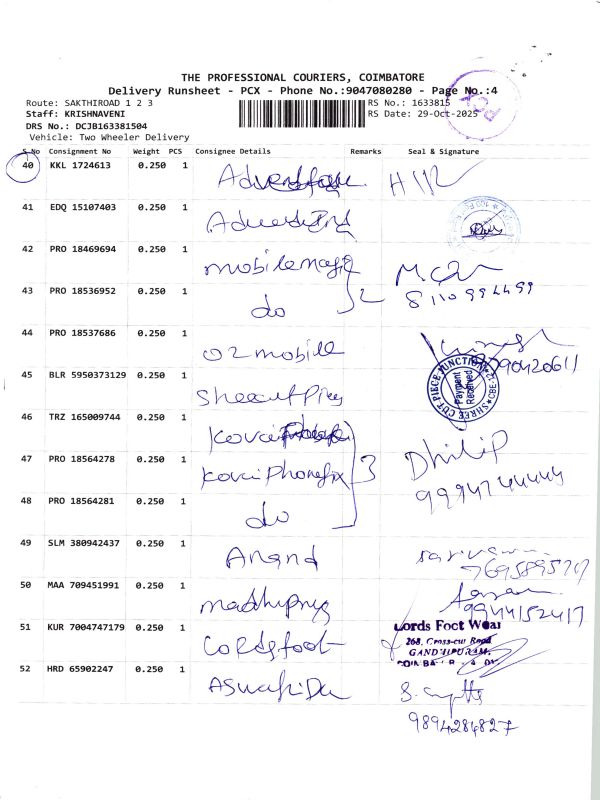 THE PROFESSIONAL COURIERS, COIMBATORE
Delivery Runsheet - PCX - Phone No.:9047080280 - Page No.:4
Route: SAKTHIROAD 1 2 3
RS No.: 1633815
Staff: KRISHNAVENI
RS Date: 29-Oct-2025
DRS No.: DCJB163381504
Vehicle: Two Wheeler Delivery
PCX
S No Consignment No Weight PCS Consignee Details Remarks Seal & Signature
40 KKL 1724613 0.250 1
41 EDQ 15107403 0.250 1
42 PRO 18469694 0.250 1 mobilemagiq
43 PRO 18536952 0.250 1 do 2 8110994499
44 PRO 18537686 0.250 1 O2 mobile
45 BLR 5950373129 0.250 1
SHREE CUT PIECE JUNCTION CBE
Payment Received
46 TRZ 165009744 0.250 1
47 PRO 18564278 0.250 1 kovaiPhonefix 3 Dhilip
9994744444
48 PRO 18564281 0.250 1 do
49 SLM 380942437 0.250 1 Anand
50 MAA 709451991 0.250 1
9944152417
51 KUR 7004747179 0.250 1 Lordsfoot
Lords Foot Wear
268, Cross-cut Road
GANDHIPURAM,
52 HRD 65902247 0.250 1
9894284827